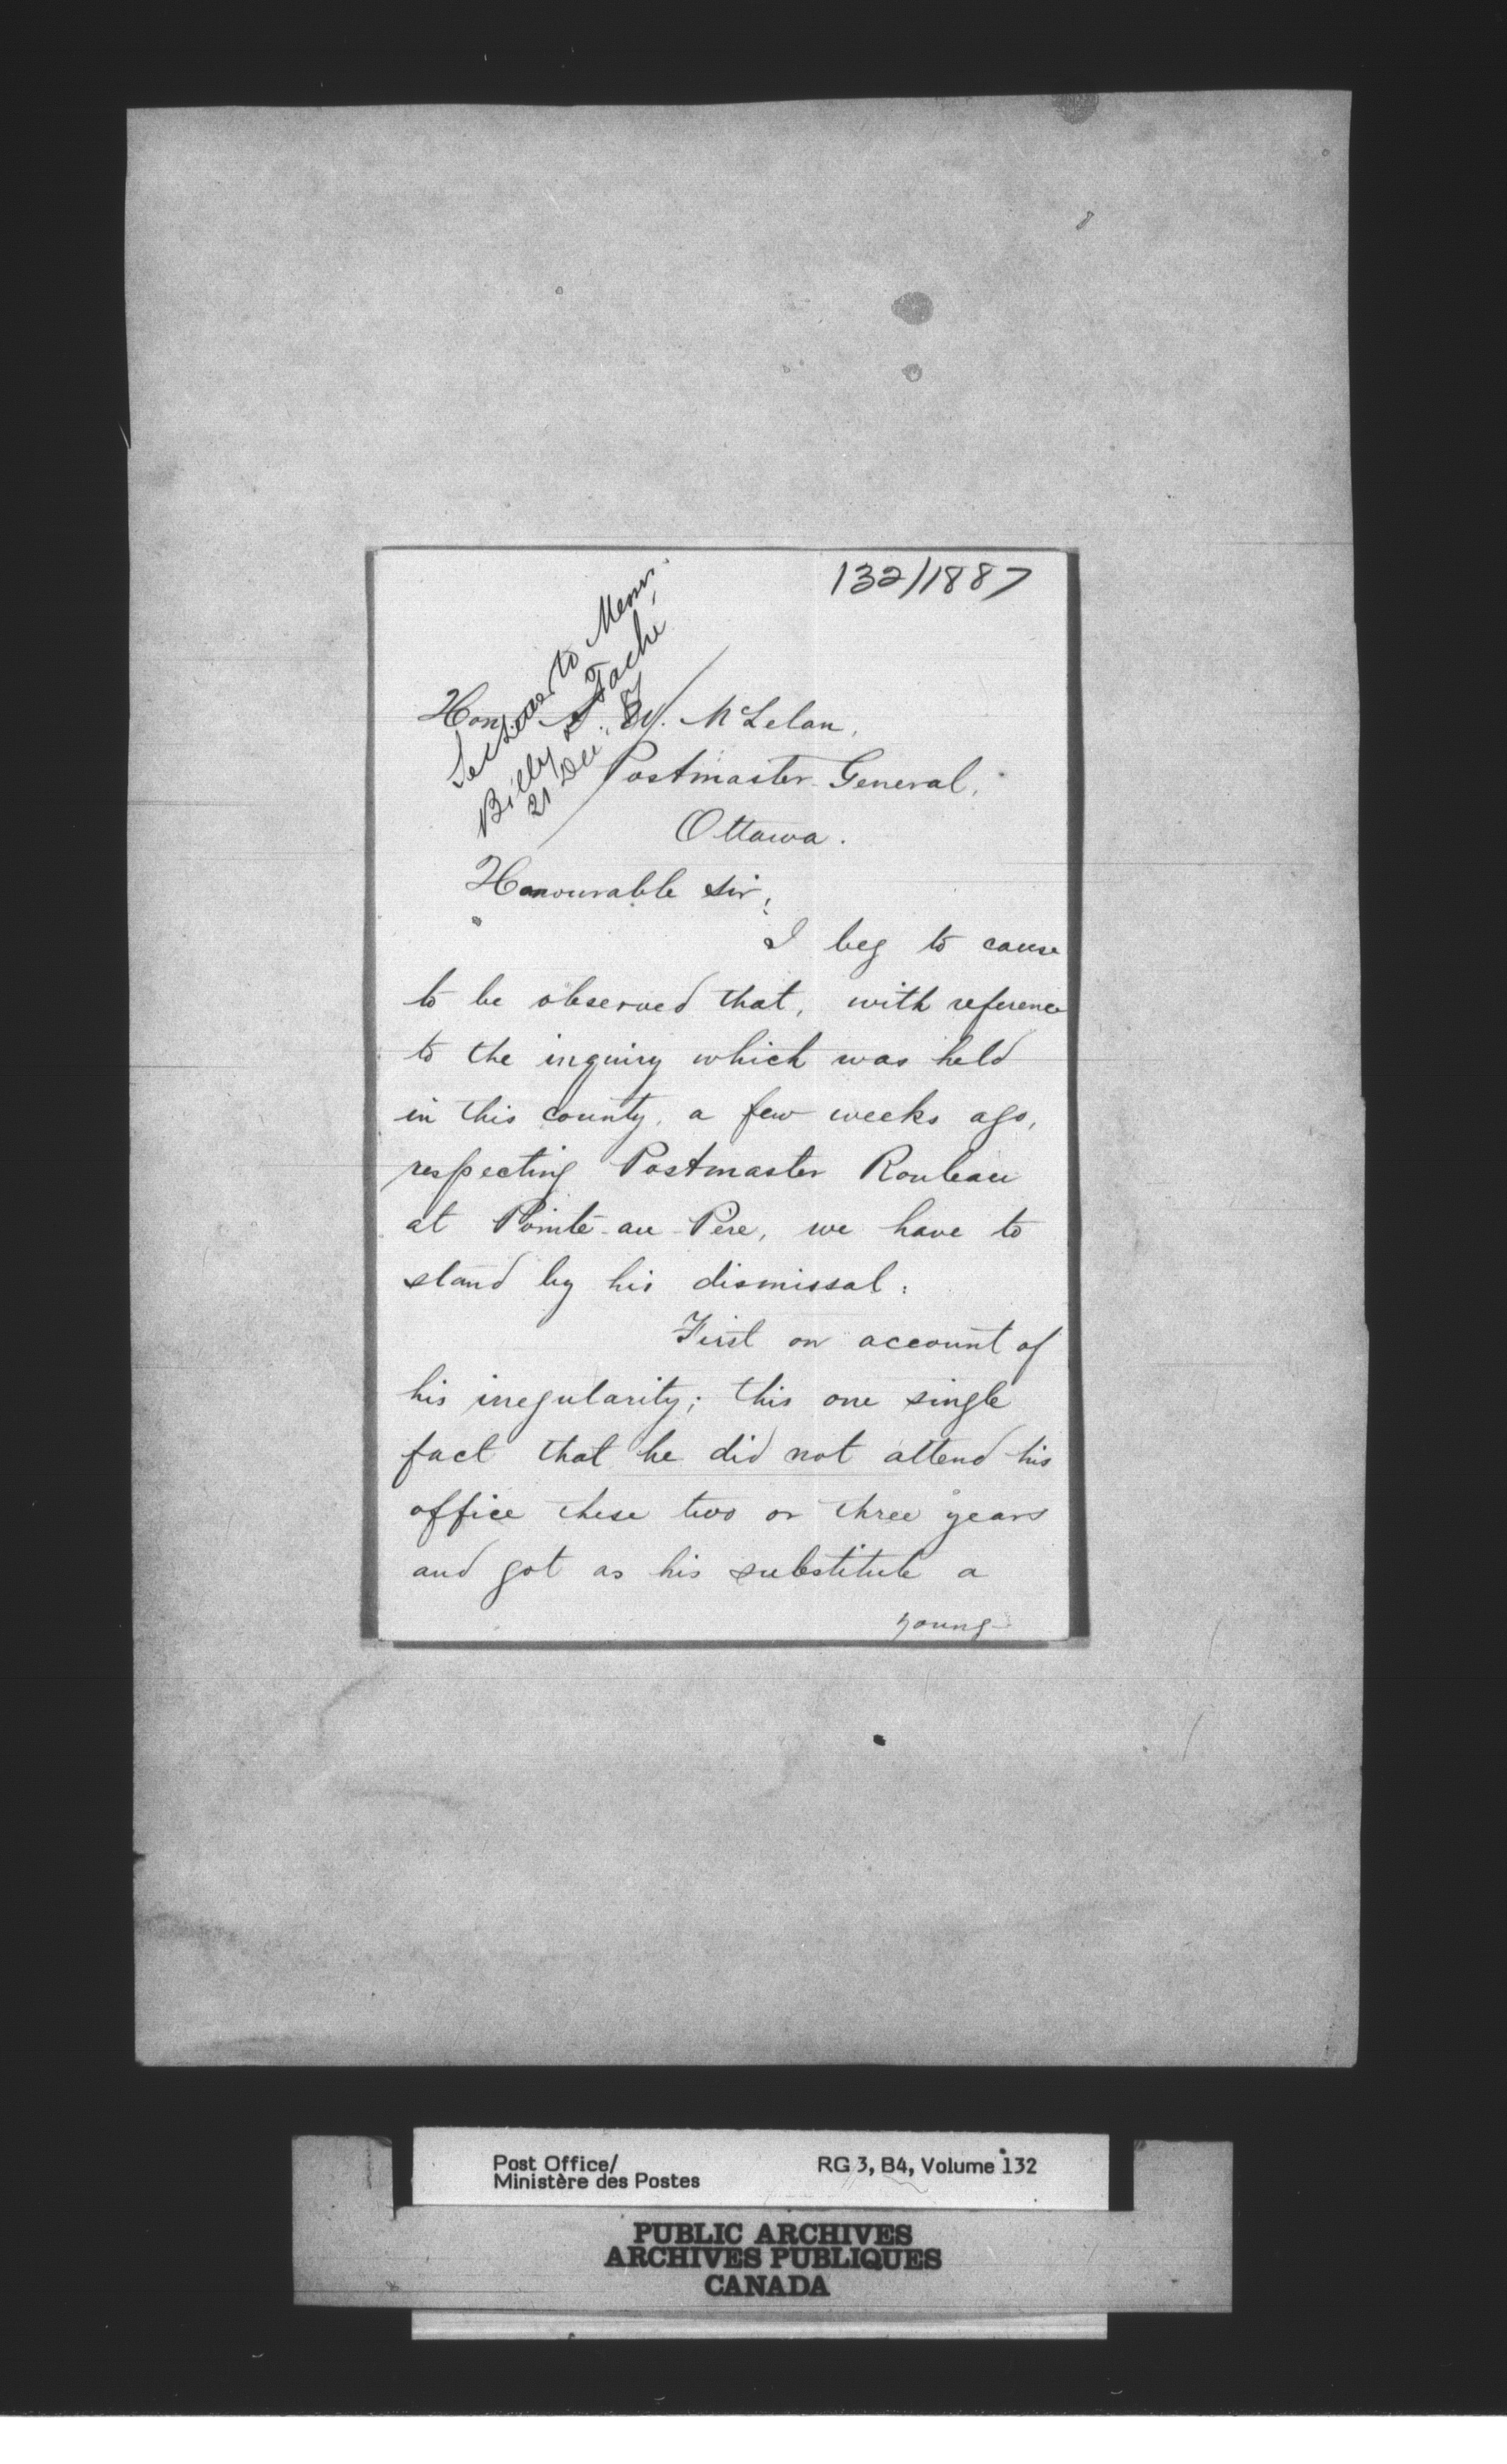 132/1887
Letter to Messrs.
Billy & Tache
21 Dec. 87
Hon. A. W. McLelan,
Postmaster General,
Ottawa.
Honourable Sir,
I beg to cause
to be observed that, with reference
to the inquiry which was held
in this county, a few weeks ago,
respecting Postmaster Rouleau
at Pointe-au-Père, we have to
stand by his dismissal:
First on account of
his iregularity; this one single
fact that he did not attend his
office these two or three years
and got as his substitute a
young
Post Office/
Ministère des Postes
RG 3, B4, Volume 132
PUBLIC ARCHIVES
ARCHIVES PUBLIQUES
CANADA